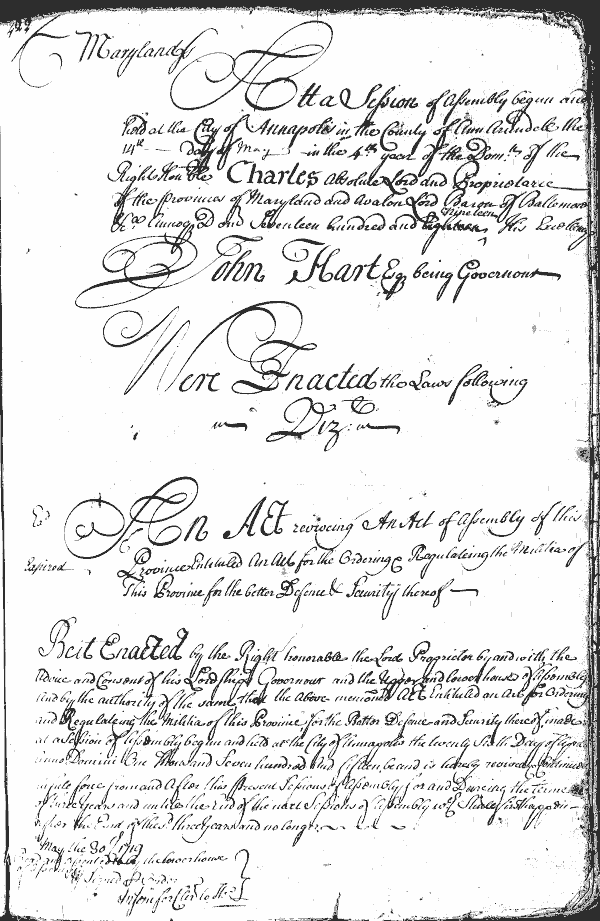 Maryland ss
Att a Session of Assembly begun and
held at the City of Annapolis in the County of Ann Arundell the
14th day of May in the 4th year of the Dom:n of the
Right Hon:ble Charles absolute Lord and Proprietarie
of the Provinces of Maryland and Avalon Lord Baron of Baltemore
&ca Annoq D one Seventeen hundred and Eighteen Nineteen His Excellency
John Hart Esq being Governour
Were Enacted the Laws following
Viz:
An Act reviveing An Act of Assembly of this
Expired
Province Entituled An Act for the Ordering & Regulateing the Militia of
This Province for the better Defence & Security thereof
Beit Enacted by the Right honorable the Lord Proprietor by and with the
advice and Consent of his Lordships Governour and the upper and lower house of Assembly
and by the authority of the same that the above menconed Act Entituled an Act for Ordering
and Regulateing the Militia of this Province for the Better Defence and Security thereof made
at a Session of Assembly begun and held at the City of Annapolis the twenty Sixth Day of
Anno Domini One Thousand Seven hundred and fifteen be and is hereby revived continued
in full force from and After this present Sessions of Assembly for and Dureing the Terme
of three years and untill the End of the next Sessions of Assembly wch Shall first happen
after the End of the sd three years and no longer
May the 30th 1719
by the lower house
Signed p Order